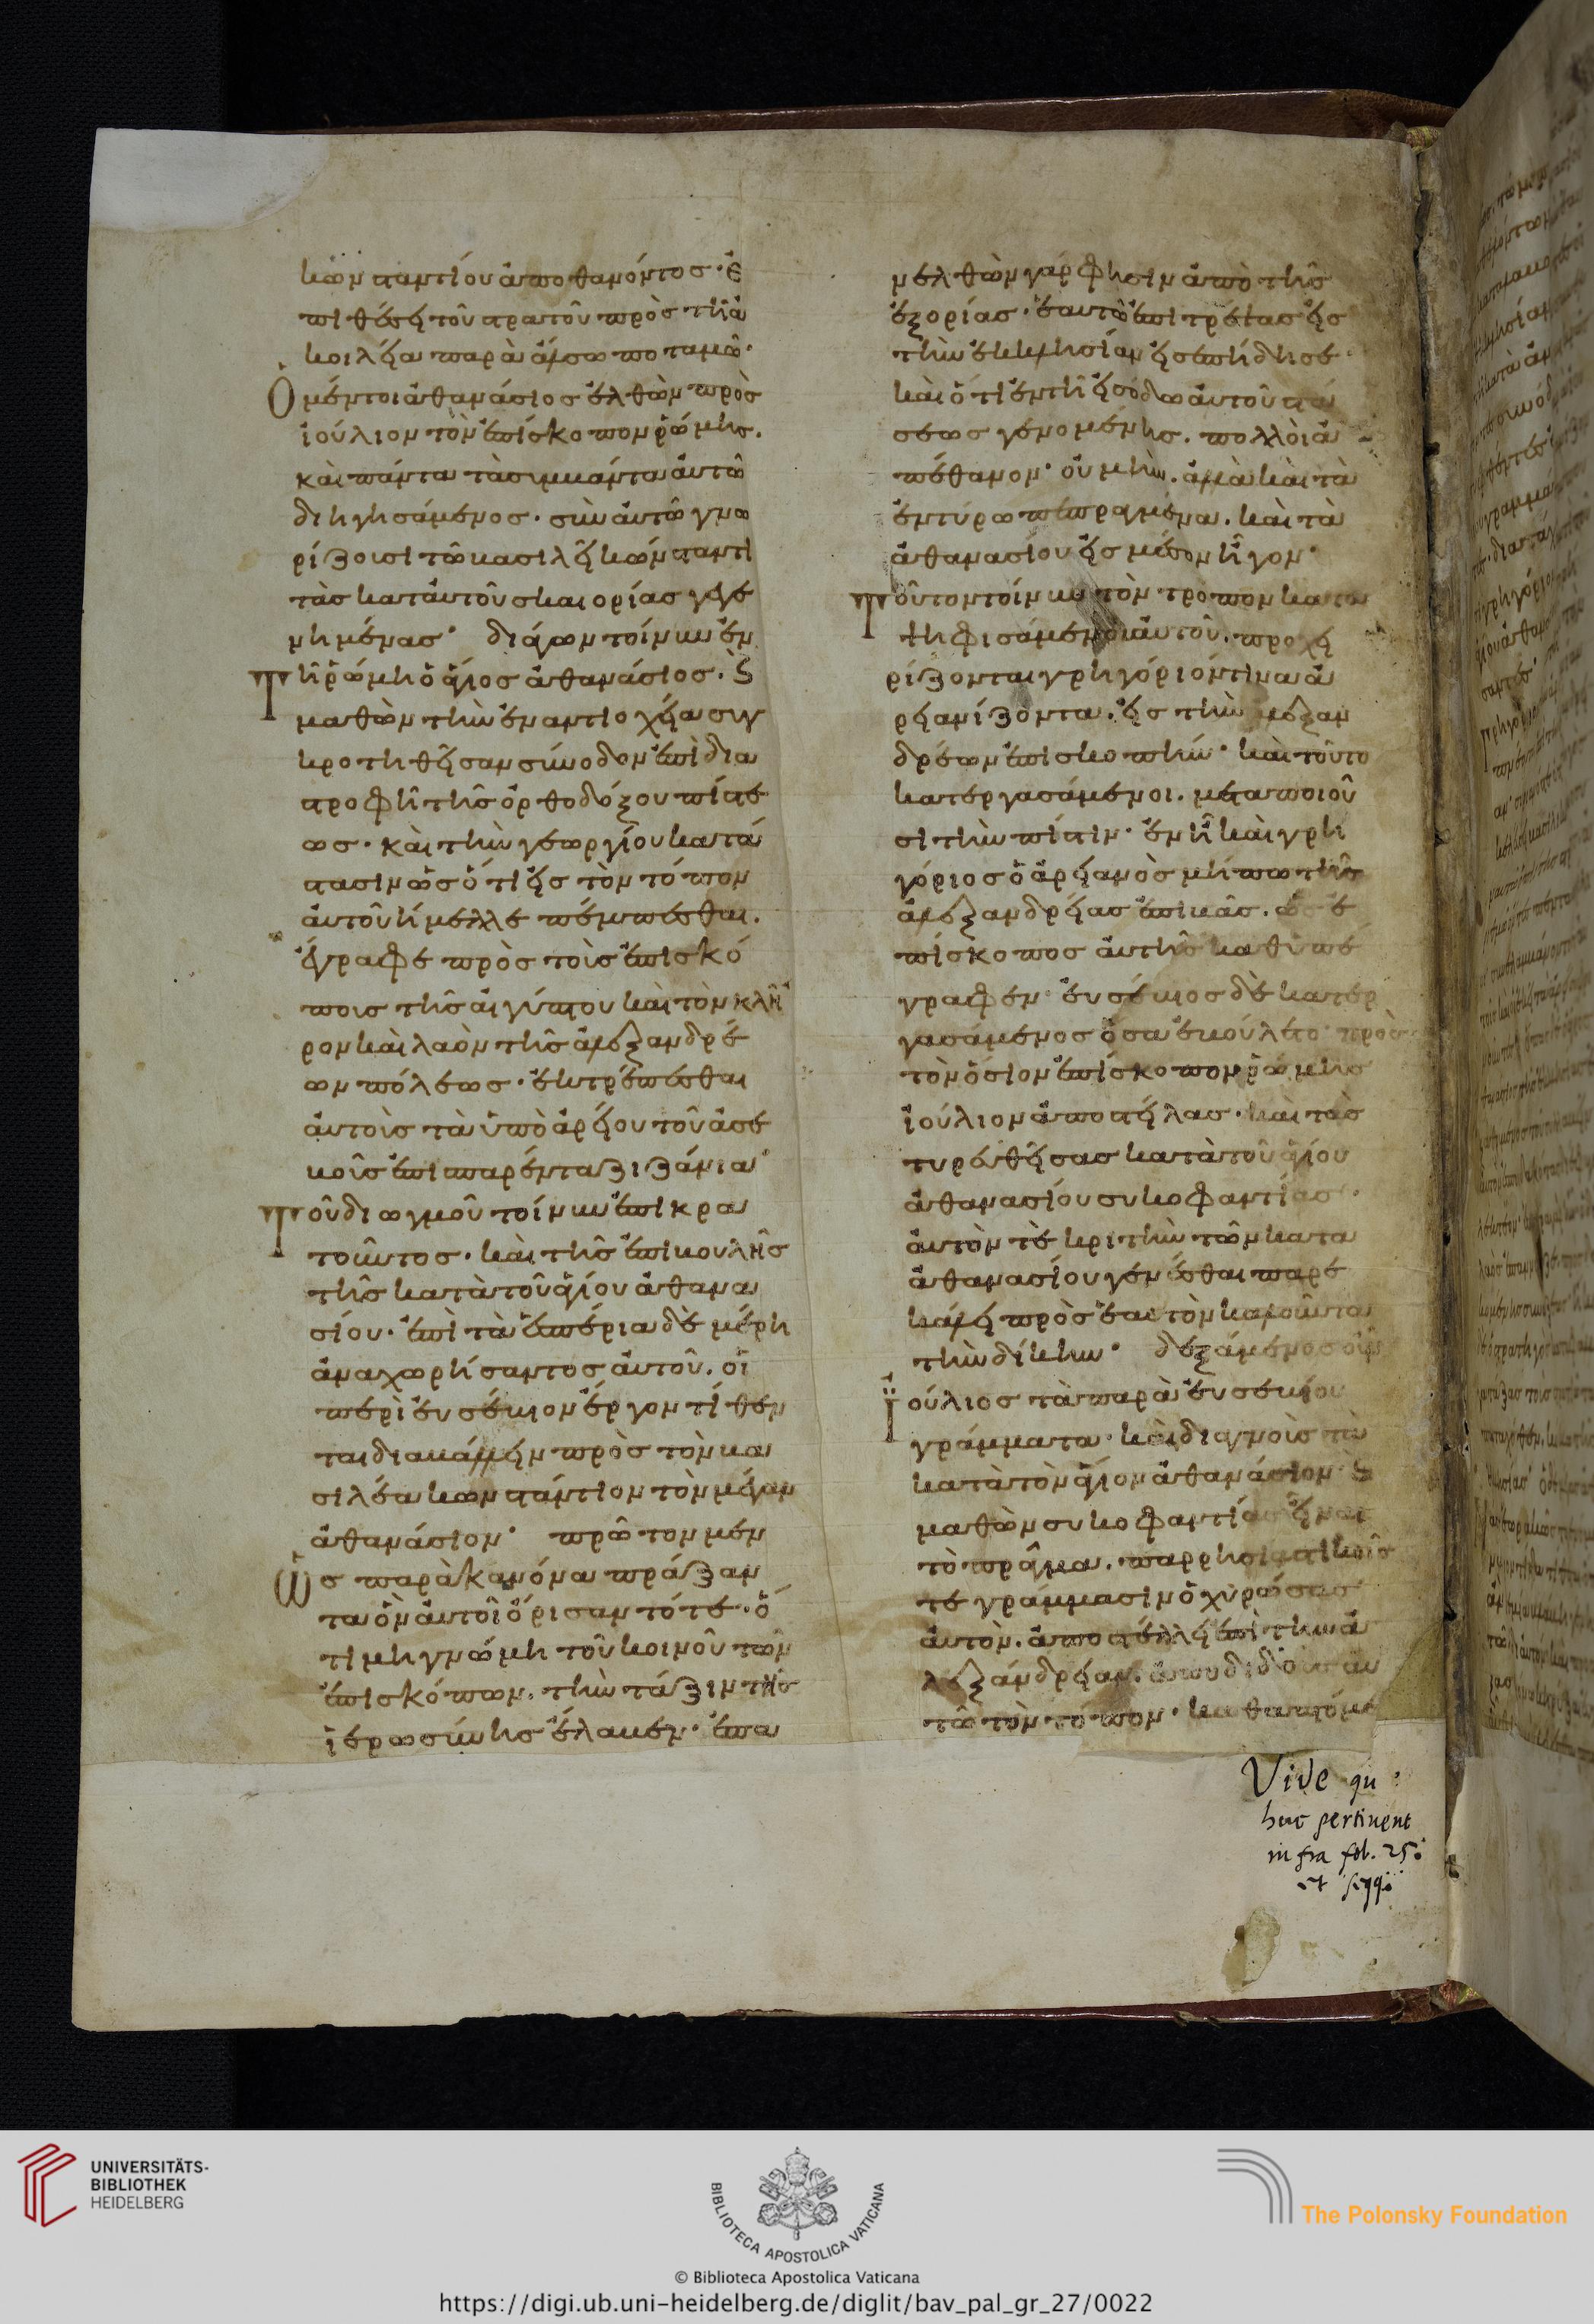 κων σταντίου ἀποθανόντος· ἐ
πιθέσει τοῦ στρατοῦ πρὸς τῆ ἀν
κοιλεία παρὰ ἄρσω ποταμῶ·
Ὁ μέντοι ἀθανάσιος ἐλθὼν πρὸς
ἰούλιον τὸν ἐπίσκοπον ῥώμης.
καὶ πάντα τὰ συμβάντα αὐτῶ
διηγησάμενος· σὺν αὐτῶ γνω
ρίζουσι τῶ βασιλεῖ κώνσταντι
τὰς κατ αὐτοῦ σκαιορίας γεγε
νημένας· διάγων τοίνυν ἐν
Τῆ ῥώμη ὁ ἅγιος ἀθανάσιος· καὶ
μαθὼν τὴν ἐν ἀντιοχεία συγ
κροτηθεῖσαν σύνοδον ἐπὶ δια
στροφῆ τῆς ὀρθοδόξου πίστε
ως· καὶ τὴν γεωργίου κατά
στασιν ὡς ὅτι εἰς τὸν τόπον
αὐτοῦ ἤμελλε πέμπεσθαι.
ἔγραφε πρὸς τοὺς ἐπισκό
πους τῆς αἰγύπτου καὶ τὸν κλῆ
ρον καὶ λαὸν τῆς ἀλεξανδρέ
ων πόλεως· ἐκτρέπεσθαι
αὐτοὺς τὰ ὑπὸ ἀρείου τοῦ ἀσε
βοῦς ἐπισπαρέντα ζιζάνια·
Τοῦ διωγμοῦ τοίνυν ἐπικρα
τοῦντος· καὶ τῆς ἐπιβουλῆς
τῆς κατὰ τοῦ ἁγίου ἀθανα
σίου· ἐπὶ τὰ ἑσπέρια δὲ μέρη
ἀναχωρήσαντος αὐτοῦ. οἱ
περὶ εὐσέβιον ἔργον τίθεν
ται διαβάλλειν πρὸς τὸν βα
σιλέα κωνστάντιον τὸν μέγαν
ἀθανάσιον· πρῶτον μὲν
Ὡς παρὰ κανόνα πράξαν
τα ὃν αὐτοὶ ὅρισαν τότε· ὅ
τι μὴ γνώμη τοῦ κοινοῦ τῶν
ἐπισκόπων. τὴν τάξιν τῆς
ἱερωσύνης ἔλαβεν· ἐπα
νελθὼν γάρ φησιν ἀπὸ τῆς
ἐξορίας· ἑαυτῶ ἐπιτρέψας εἰς
τὴν ἐκκλησίαν εἰσεπήδησε·
καὶ ὅτι ἐν τῆ εἰσόδω αὐτοῦ στά
σεως γενομένης. πολλοὶ ἀ
πέθανον· οὐ μὴν. ἀλλὰ καὶ τὰ
ἐν τύρω πεπραγμένα. καὶ τὰ
ἀθανασίου εἰς μέσον ἦγον·
Τοῦτον τοίνυν τὸν τρόπον κατα
ψηφισάμενοι αὐτοῦ. προχει
ρίζονται γρηγόριόν τινα ἀ
ρειανίζοντα. εἰς τὴν ἀλεξαν
δρέων ἐπισκοπήν· καὶ τοῦτο
κατεργασάμενοι. μεταποιοῦ
σι τὴν πίστιν· ἐν ἧ καὶ γρη
γόριος ὁ ἀρειανὸς μήπω τῆς
ἀλεξανδρείας ἐπιβὰς. ὡς ἐ
πίσκοπος αὐτῆς καθυπέ
γραψεν· εὐσέβιος δὲ κατερ
γασάμενος ὅσα ἐβούλετο πρὸς
τὸν ὅσιον ἐπίσκοπον ῥώμης
ἰούλιον ἀποστείλας· καὶ τὰς
τυρευθείσας κατὰ τοῦ ἁγίου
ἀθανασίου συκοφαντίας·
αὐτὸν τὲ κριτὴν τῶν κατα
ἀθανασίου γενέσθαι παρε
κάλει πρὸς ἑαυτὸν καλοῦντα
τὴν δίκην· δεξάμενος οὖν
Ἰούλιος τὰ παρὰ εὐσεβίου
γράμματα· καὶ διαγνοὺς τὰ
κατὰ τὸν ἅγιον ἀθανάσιον· καὶ
μαθὼν συκοφαντίαν εἶναι
τὸ πρᾶγμα. παρρησιαστικοῖς
τε γράμμασιν ὀχυρώσας
αὐτὸν. ἀποστέλλει ἐπὶ τὴν ἀ
λεξάνδρειαν. ἀποδιδοὺς αὐ
τῶ τὸν τόπον· καθαψάμε
Vide qu
huc pertinent
infra fol. 25.
et seqq.
UNIVERSITÄTS-
BIBLIOTHEK
HEIDELBERG
BIBLIOTECA APOSTOLICA VATICANA
The Polonsky Foundation
© Biblioteca Apostolica Vaticana
https://digi.ub.uni-heidelberg.de/diglit/bav_pal_gr_27/0022